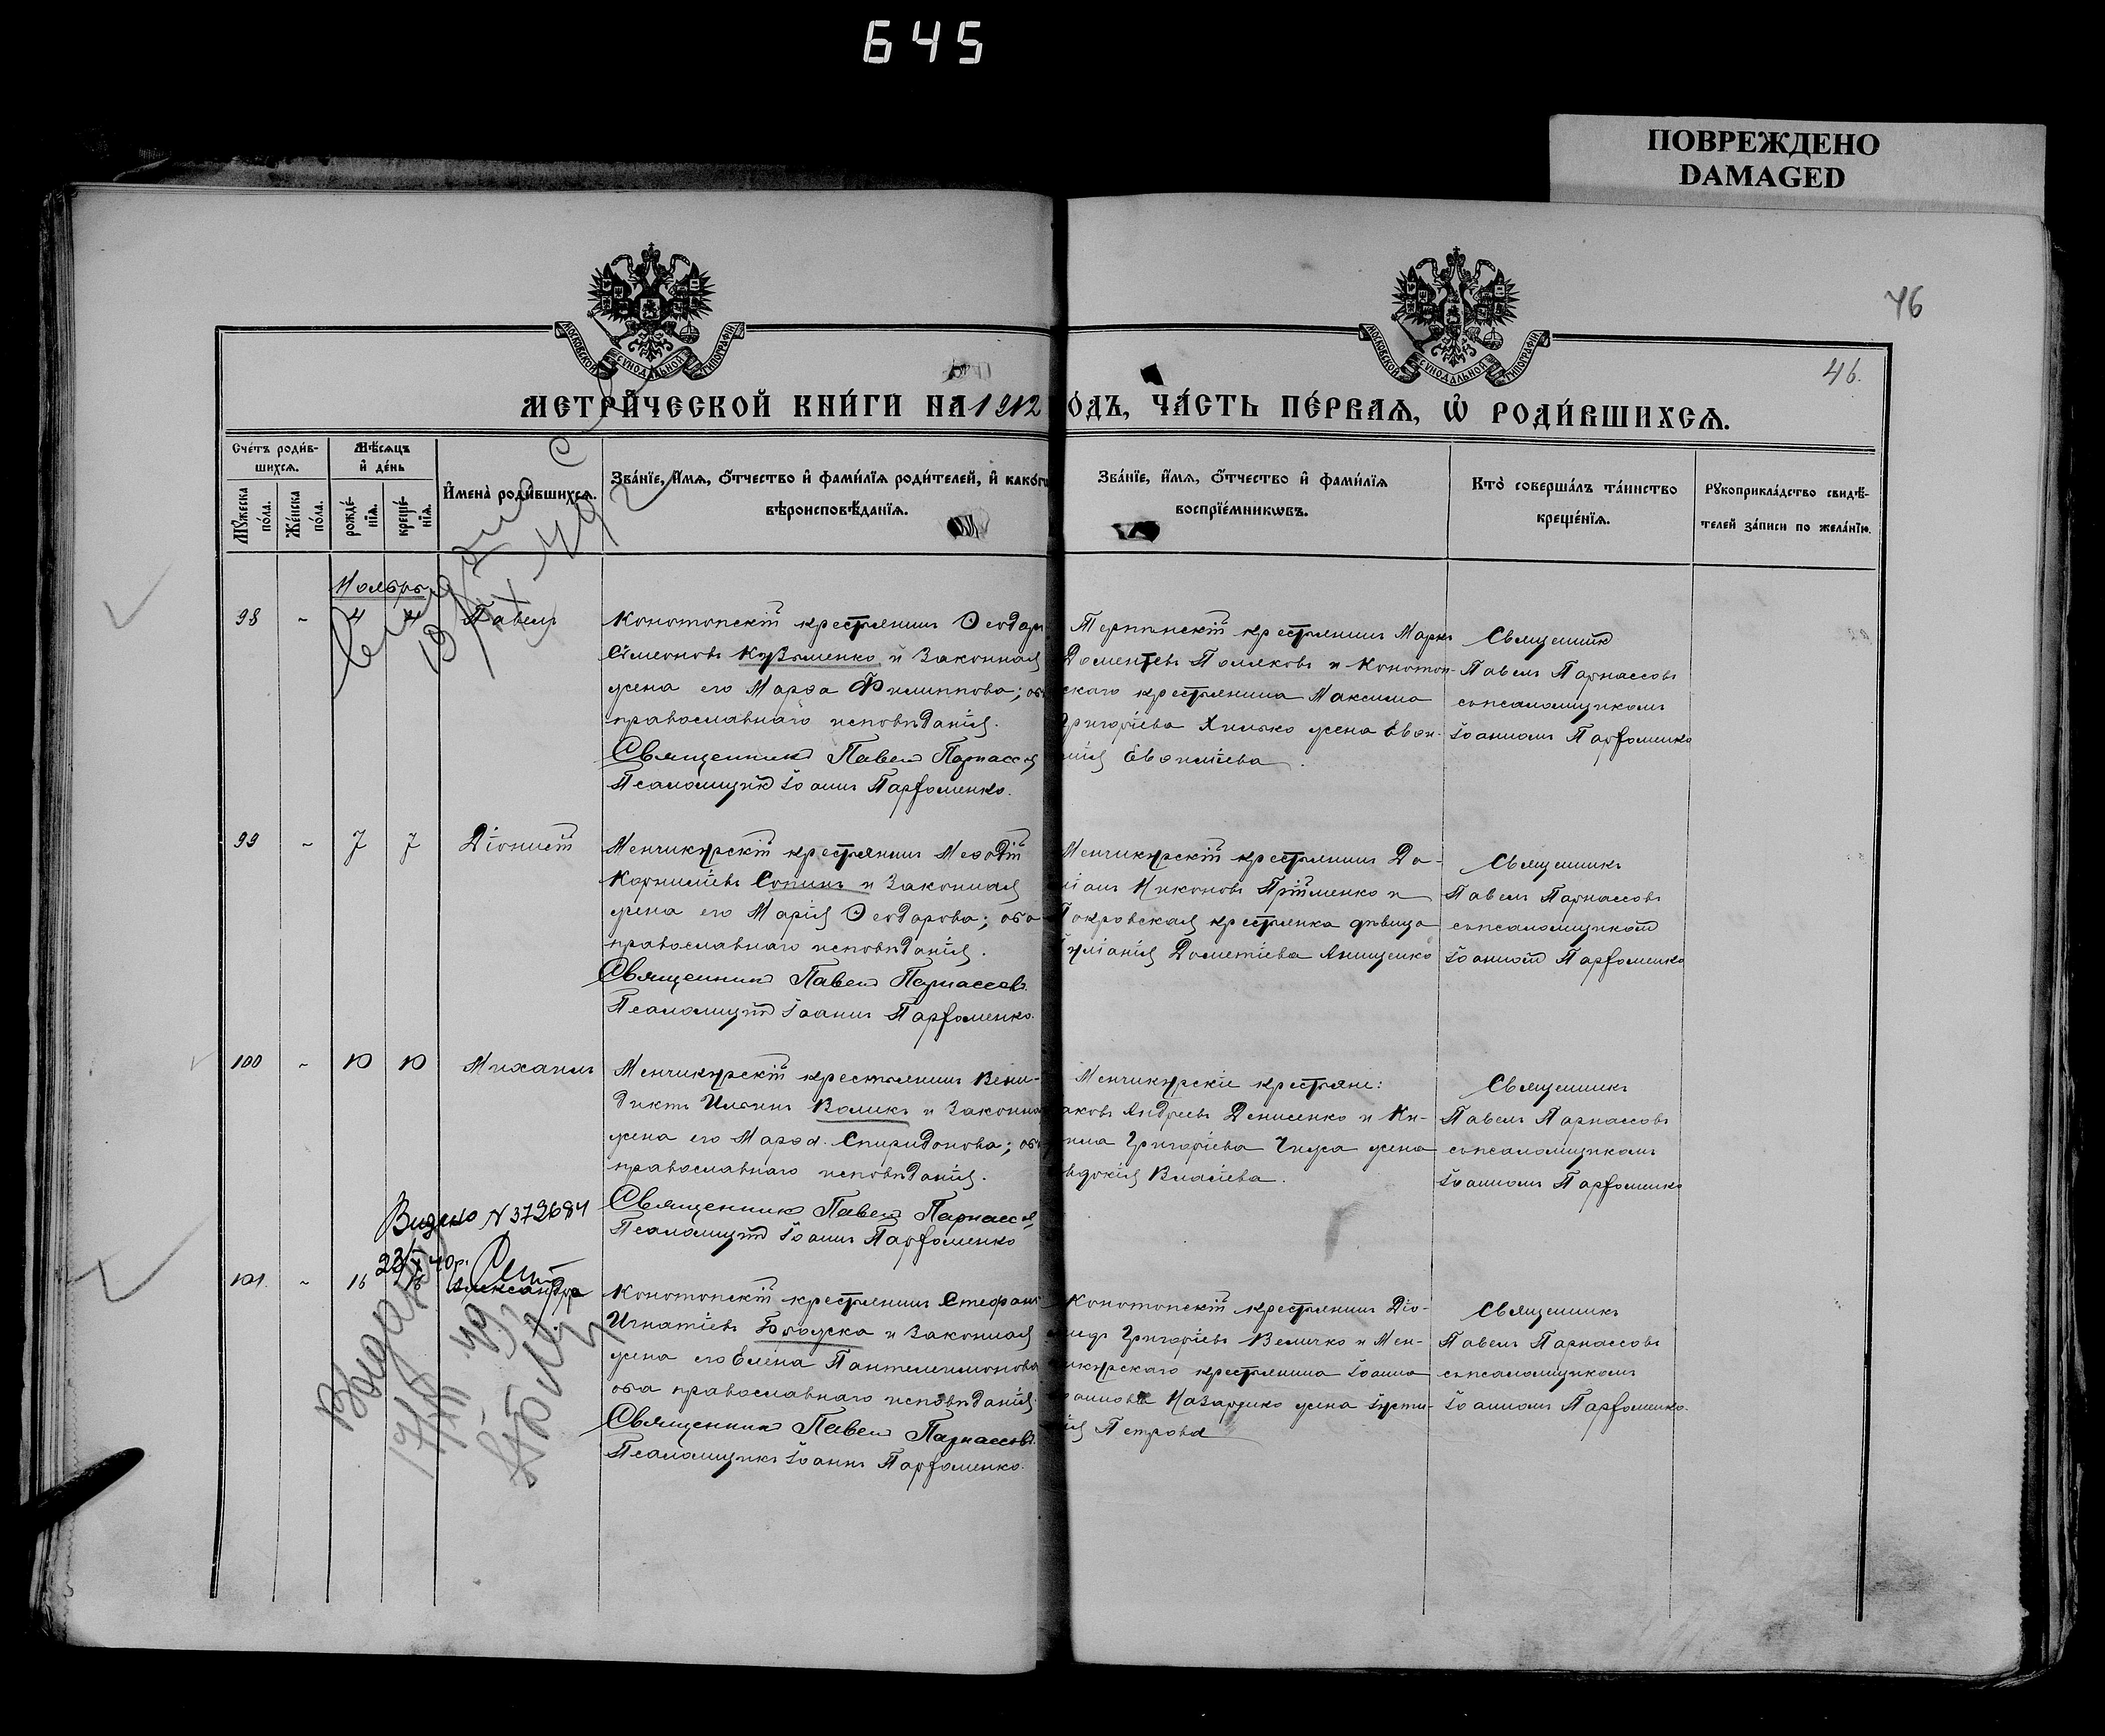 645
ПОВРЕЖДЕНО
DAMAGED
46
46.
МОСКОВСКОЙ СѴНОДАЛЬНОЙ ТИПОГРАФІИ
МОСКОВСКОЙ СѴНОДАЛЬНОЙ ТИПОГРАФІИ
МЕТРИ́ЧЕСКОЙ КНИ́ГИ НА 1912
ОДЪ, ЧА́СТЬ ПЕ́РВАѦ, Ѡ҆ РОДИ́ВШИХСѦ.
Сче́тъ роди́в-
шихсѧ.
Мꙋ́жеска по́ла.
Же́нска по́ла.
Мѣ́сѧцъ
и҆ де́нь
рожде́-
нїѧ.
креще́-
нїѧ.
И҆мена̀ роди́вшихсѧ.
Зва́нїе, и҆́мѧ, ѻ҆́тчество и҆ фами́лїѧ роди́телей, и҆ како́г
вѣроисповѣ́данїѧ.
Зва́нїе, и҆́мѧ, ѻ҆́тчество и҆ фами́лїѧ
воспрїе́мникѡвъ.
Кто̀ соверша́лъ та́инство
креще́нїѧ.
Рꙋкоприкла́дство свидѣ́-
телей за́писи по жела́нїю.
Ноябрь
98 - 4 4 Павелъ
Конотопскій крестьянинъ Ѳеодоръ
Сімеоновъ Кузьменко и законная
жена его Марѳа Филиппова; об
православнаго исповѣданія.
Священникъ Павелъ Парнассов
Псаломщикъ Іоаннъ Парфоменко.
Терпѣнскій крестьянинъ Маркъ
Доментьевъ Поляковъ и Конотоп-
скаго крестьянина Максима
Григоріева Хилько жена Евѳи-
мія Евѳиміева.
Священникъ
Павелъ Парнассовъ
съ псаломщикомъ
Іоанномъ Парфоменко
99 - 7 7 Діонисій
Менчикурскій крестьянинъ Меѳодій
Корниліевъ Сопинъ и законная
жена его Марія Ѳеодорова; оба
православнаго исповѣданія.
Священникъ Павелъ Парнассовъ.
Псаломщикъ Іоаннъ Парфоменко.
Менчикурскій крестьянинъ Да-
міанъ Никоновъ Прійменко и
Покровская крестьянка дѣвица
Іуліанія Дометіева Анищенко
Священникъ
Павелъ Парнассовъ
съ псаломщикомъ
Іоанномъ Парфоменко
100 - 10 10 Михаилъ
Менчикурскій крестьянинъ Вени-
диктъ Ильинъ Воликъ и законна
жена его Марѳа Спиридонова; об
православнаго исповѣданія.
Священникъ Павелъ Парнассов
Псаломщикъ Іоаннъ Парфоменко
Менчикурскіе крестьяне:
аковъ Андреевъ Денисенко и Ки-
рила Григоріева Чижа жена
вдокія Власіева.
Священникъ
Павелъ Парнассовъ
съ псаломщикомъ
Іоанномъ Парфоменко
Видано N 372684
22/X 40р.
101. - 16 18 Александръ
Выдано
17/XII 49
Конотопскій крестьянинъ Стефанъ
Игнатіевъ Бражка и законная
жена его Елена Пантелеимонова
оба православнаго исповѣданія.
Священникъ Павелъ Парнассовъ.
Псаломщикъ Іоаннъ Парфоменко.
Конотопскій крестьянинъ Діо-
мидъ Григоріевъ Величко и Мен-
чикурскаго крестьянина Іоанна
оаннова Назаренко жена Іусти-
нія Петрова
Священникъ
Павелъ Парнассовъ
съ псаломщикомъ
Іоанномъ Парфоменко.